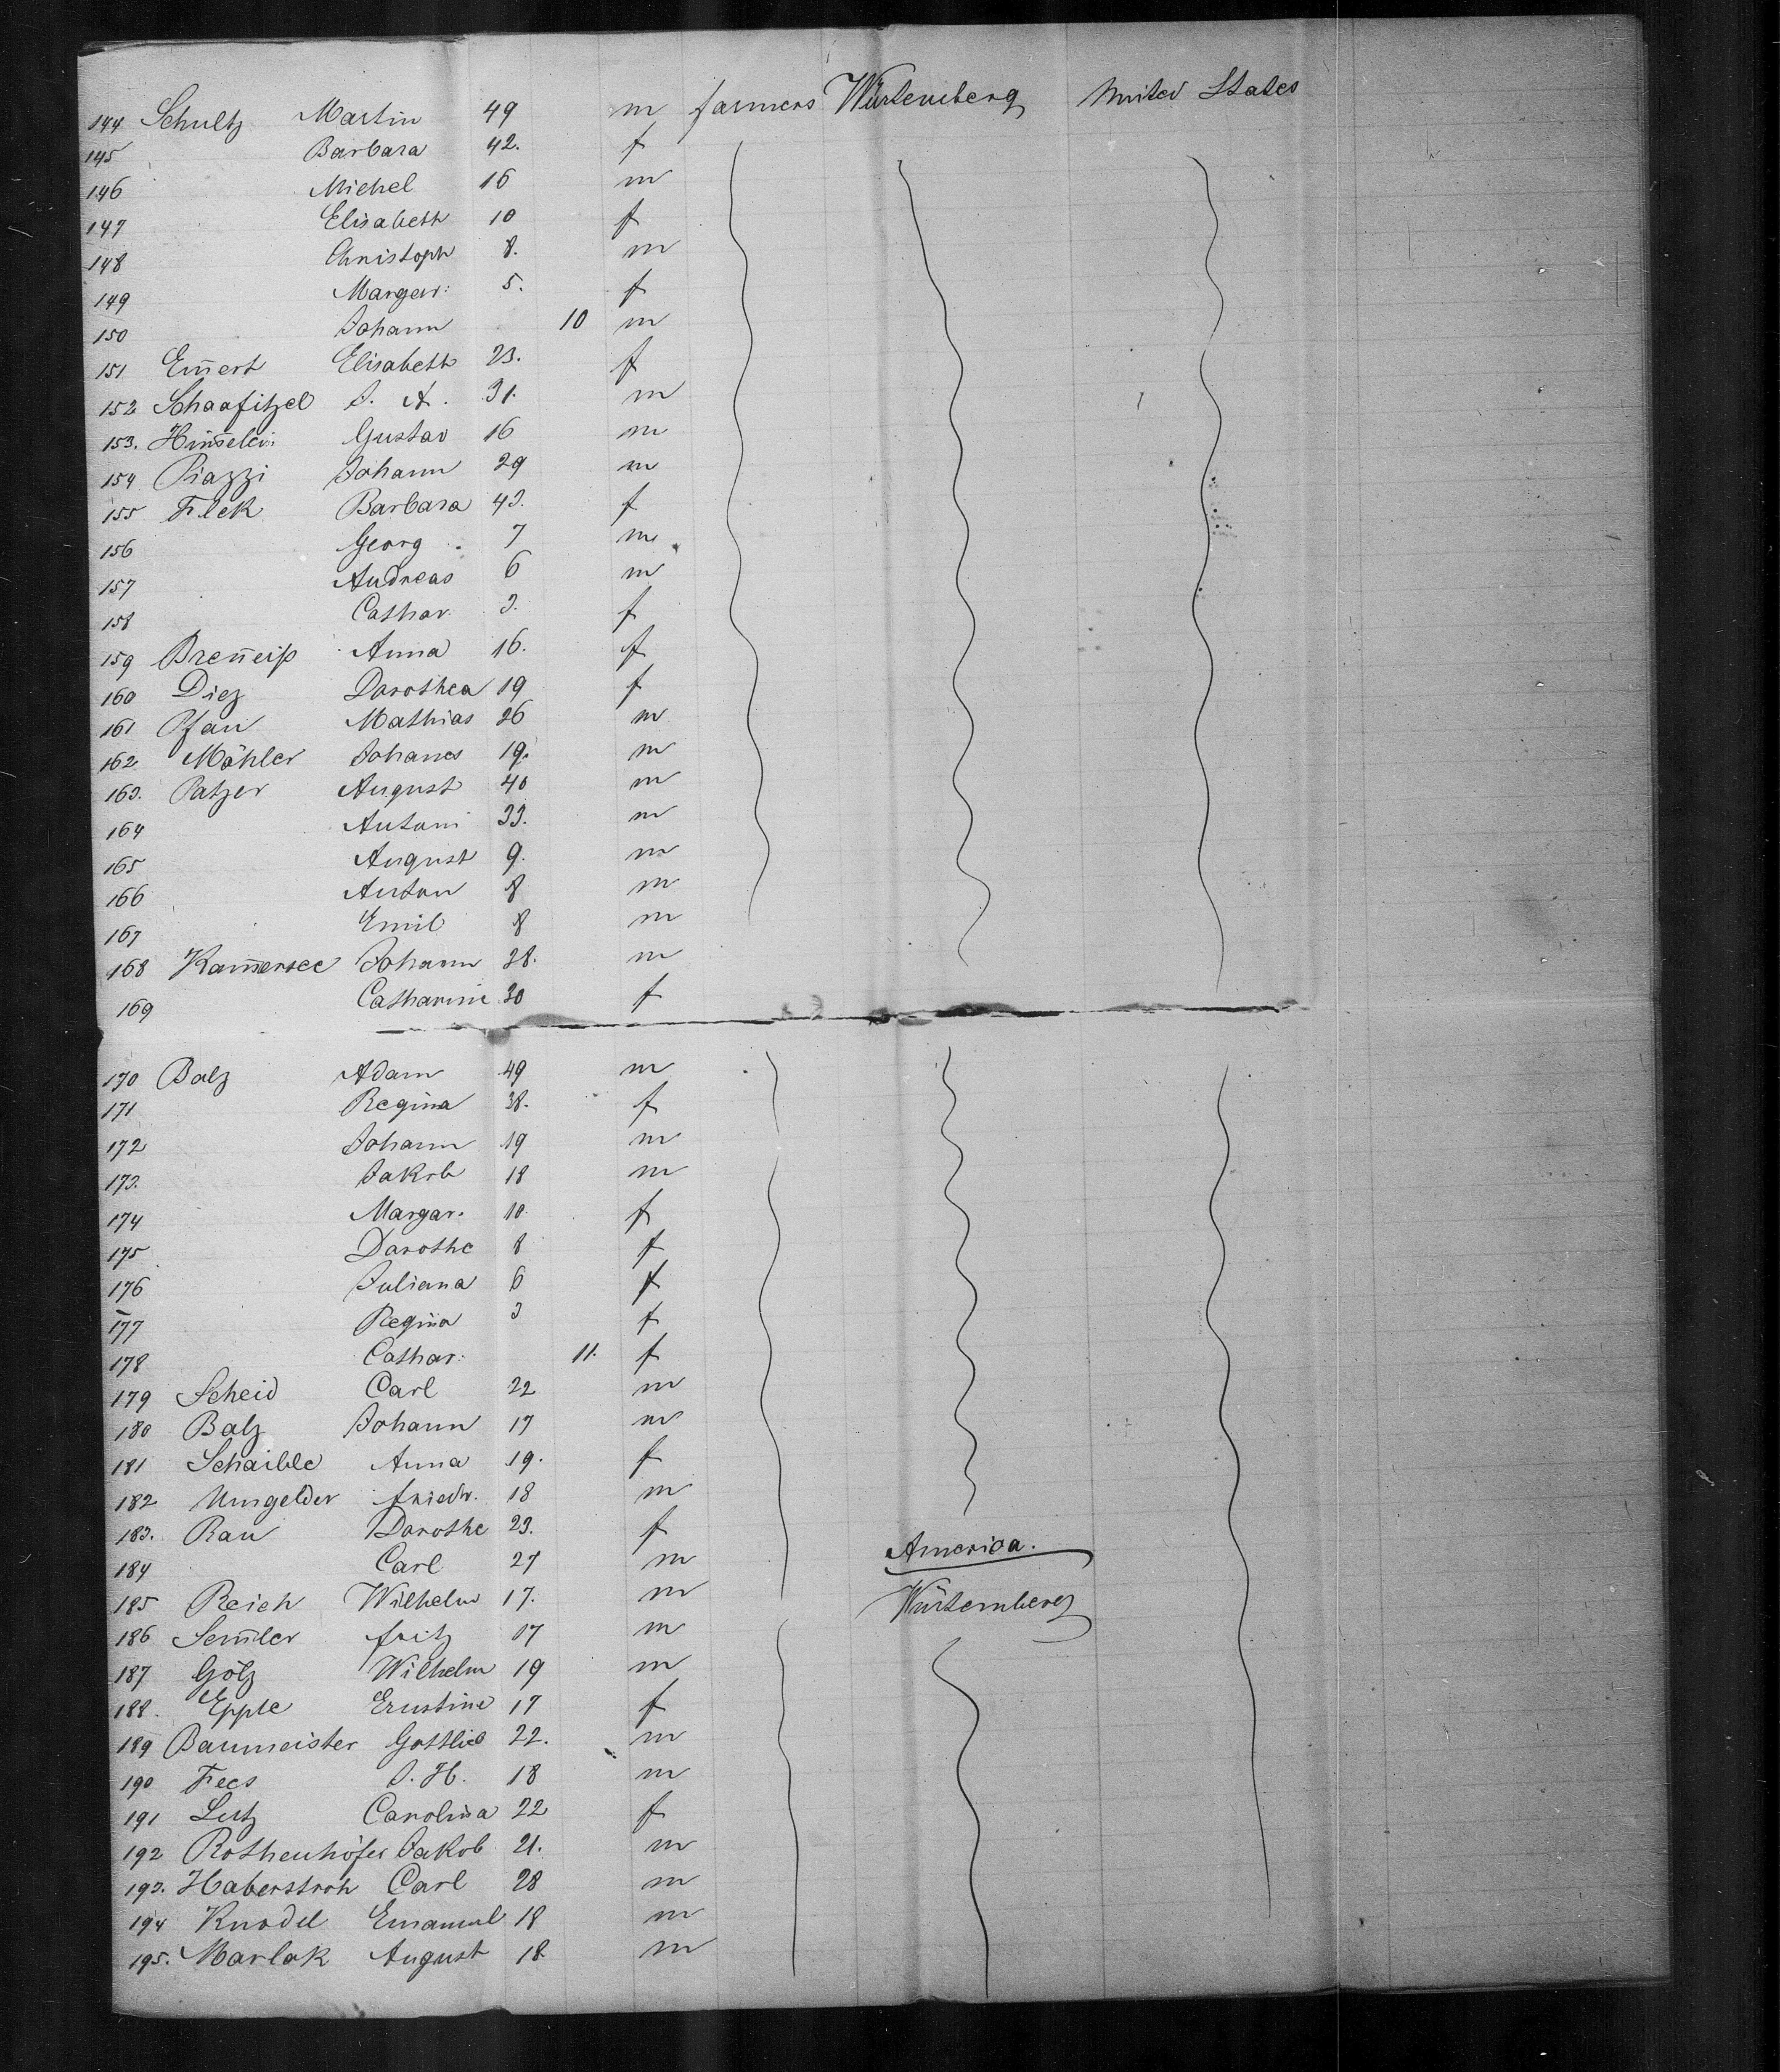 144 Schultz Martin 49 m farmers Würtemberg United States
145 Barbara 42. f
146 Michel 16 m
147 Elisabeth 10 f
148 Christoph 8. m
149 Margar: 5. f
150 Johann 10 m
151 Em̄ert Elisabeth 23. f
152 Schaafitzel J. A. 31. m
153. Gustav 16 m
154 Piazzi Johann 29 m
155 Fleck Barbara 43. f
156 Georg 7 m
157 Andreas 6 m
158 Cathar. 3. f
159 Bren̄eiß Anna 16. f
160 Diez Dorothea 19 f
161 Pfau Mathias 26 m
162 Mähler Johanes 19. m
163. Patzer August 40 m
164 Antoni 33. m
165 August 9. m
166 Anton 8 m
167 Emil 8 m
168 Kam̄ersee Johann 38. m
169 Catharine 30 f
170 Balz Adam 49 m
171 Regina 38. f
172 Johann 19 m
173. Jakob 18 m
174 Margar. 10. f
175 Dorothe 8 f
176 Juliana 6 f
177 Regina 3 f
178 Cathar: 11. f
179 Scheid Carl 22 m
180 Balz Johann 17 m
181 Schaible Anna 19. f
182 Umgelder Friedr. 18 m
183. Rau Dorothe 23. f
184 Carl 27 m America.
185 Reich Wilhelm 17. m Würtemberg
186 Sem̄ler Fritz 17 m
187 Gölz Wilhelm 19 m
188. Epple Ernstine 17 f
189 Baumeister Gottlieb 22. m
190 Fees J. H. 18 m
191 Lutz Carolina 22 f
192 Rothenhöfer Jakob 21. m
193. Haberstroh Carl 28 m
194 Knodel Emanuel 18 m
195. Marlok August 18. m